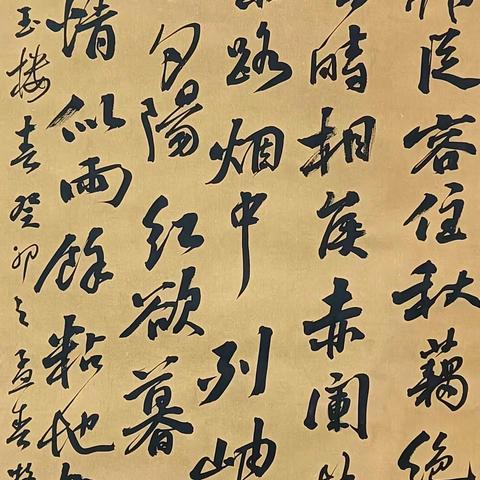 從容住秋藕絕
時相矦赤闌
路烟中列岫
夕陽紅欲暮
情似雨餘粘地
玉楼春癸卯之孟春